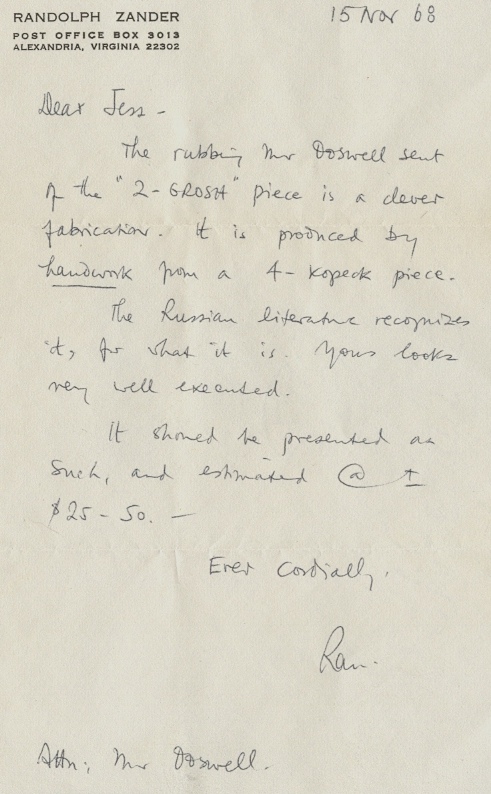 RANDOLPH ZANDER
POST OFFICE BOX 3013
ALEXANDRIA, VIRGINIA 22302
15 Nov 68
Dear Jess -
The rubbing Mr Doswell sent
of the "2-GROSH" piece is a clever
fabrication. It is produced by
handwork from a 4-kopeck piece.
The Russian literature recognizes
it, for what it is. Yours looks
very well executed.
It should be presented as
such, and estimated @ ±
$25-50. —
Ever cordially,
Ran.
Attn: Mr Doswell.